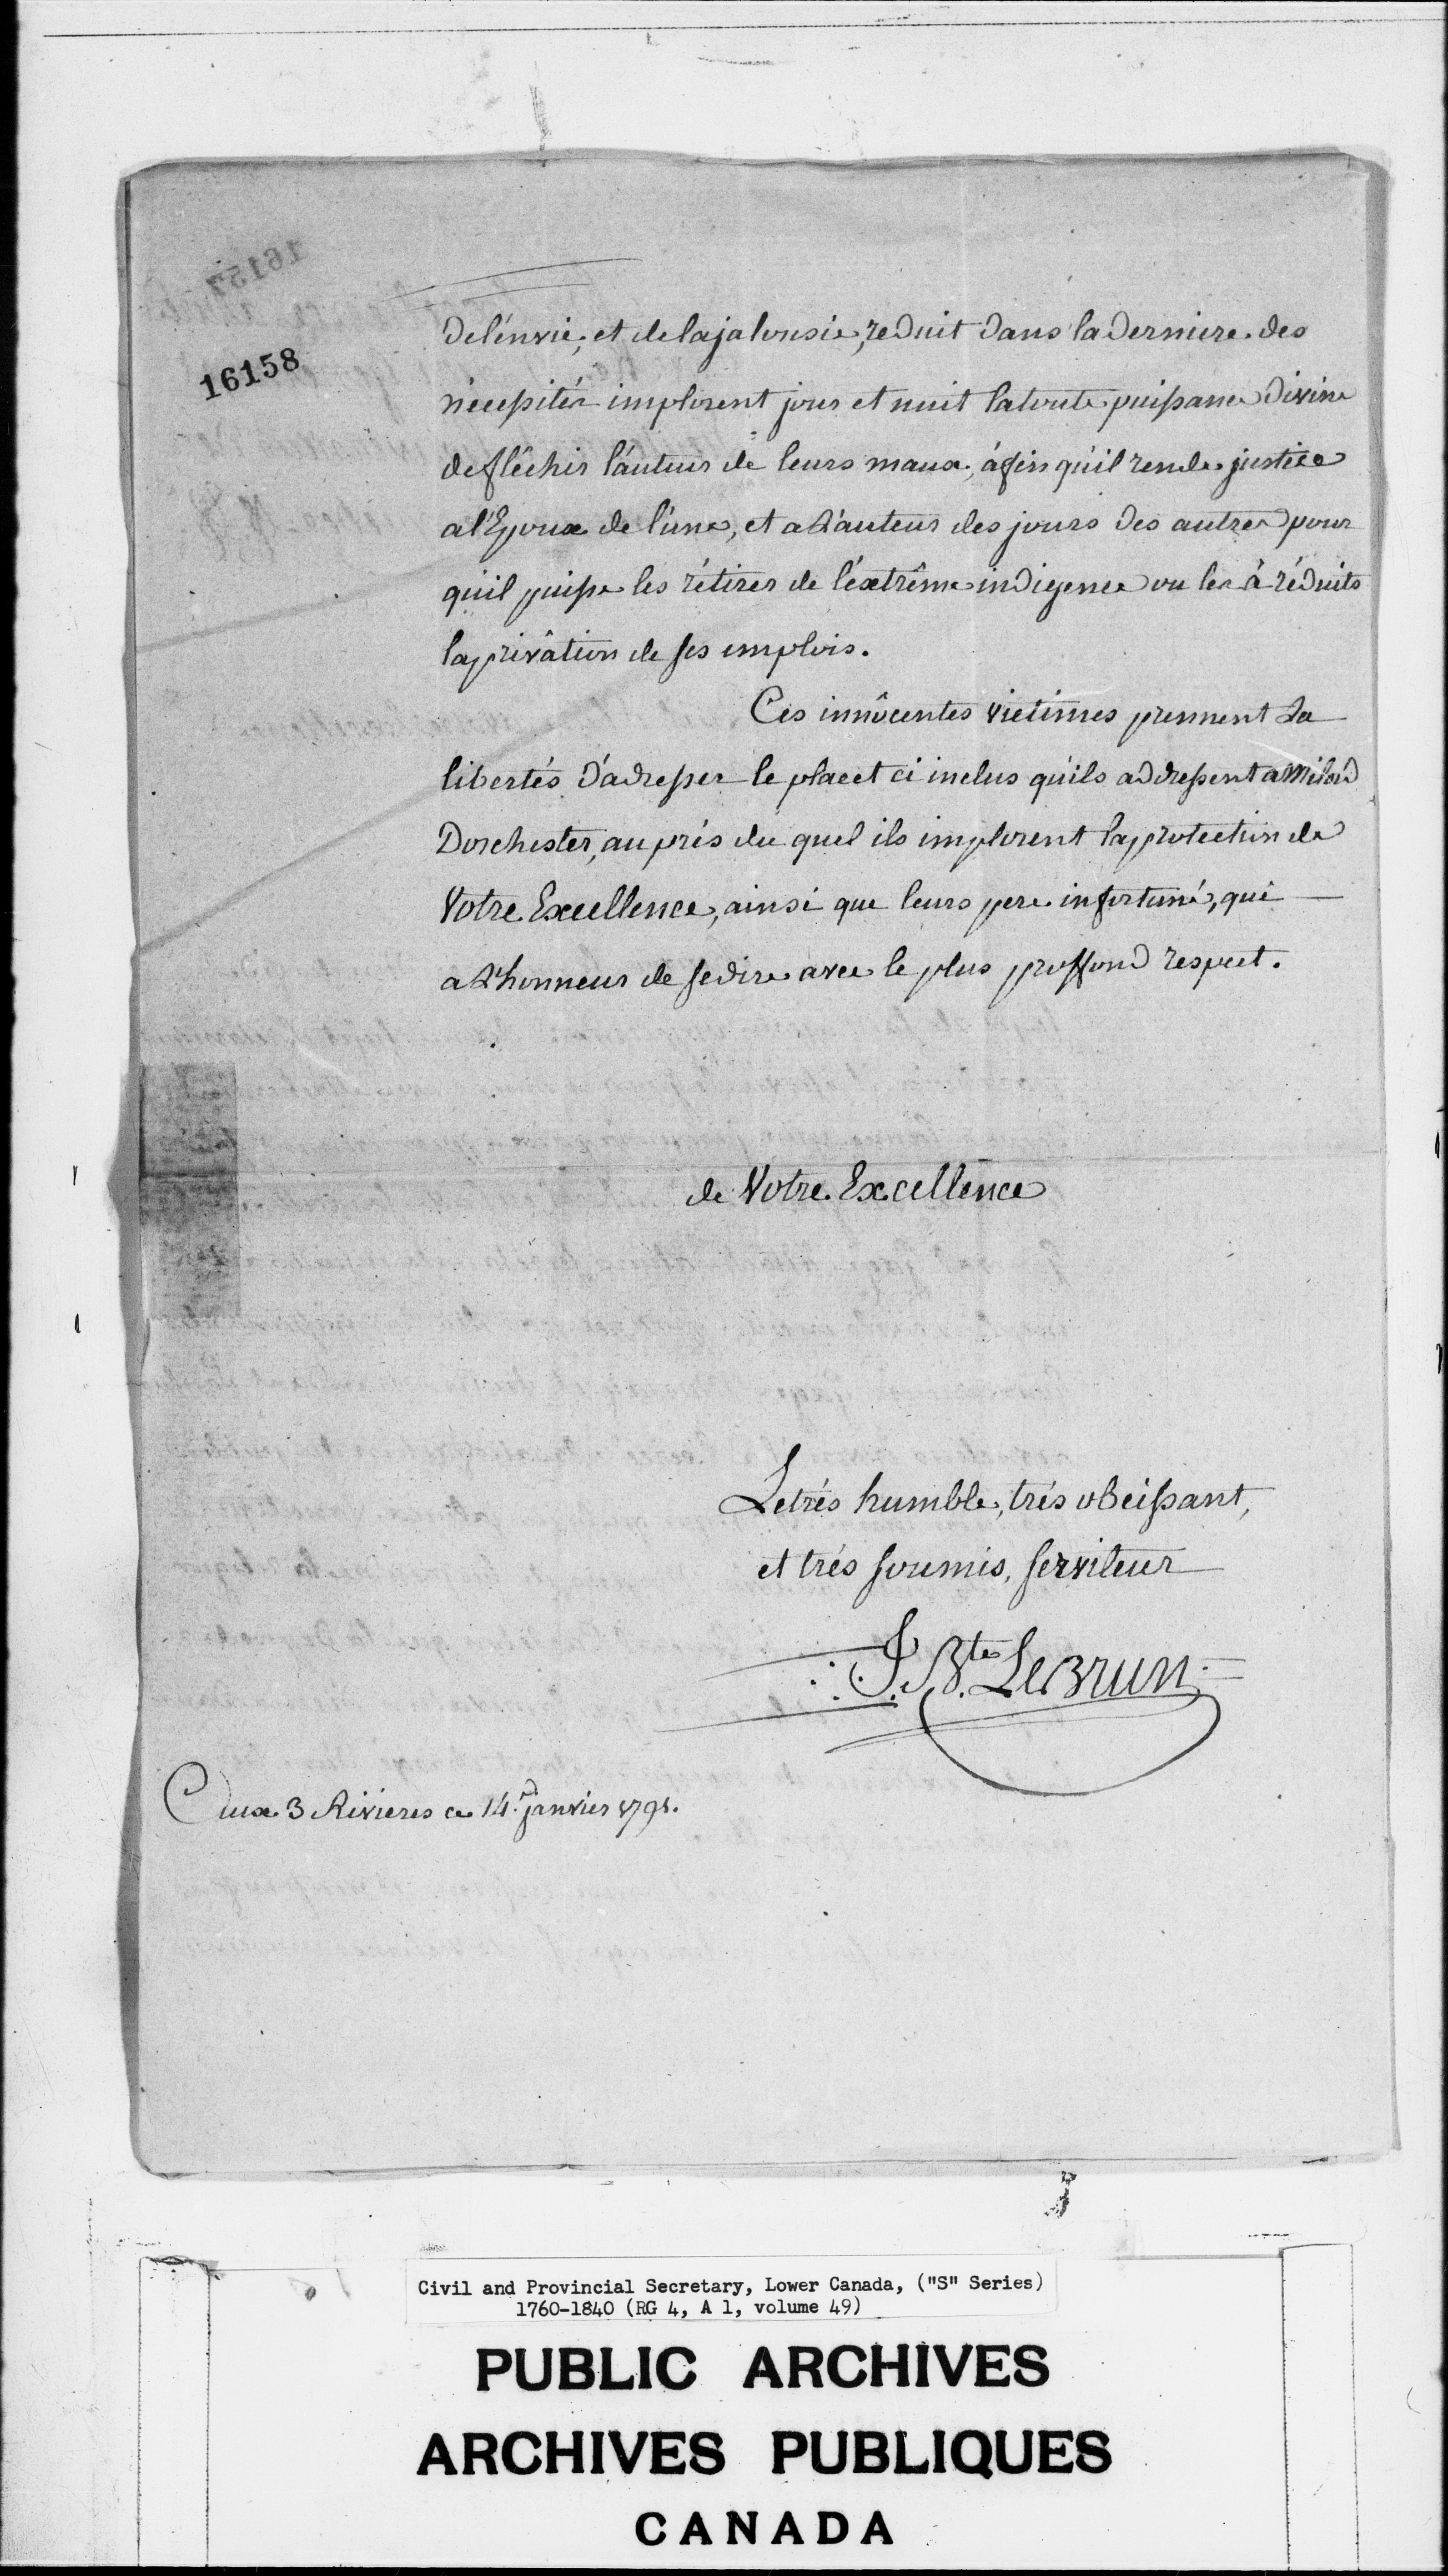 16157
16158
de l'énvie, et de la jalousie, reduit dans la derniere des
nécessités implorent jour et nuit la toute puissance divine
de flêchir l'áuteur de leurs maux, áfin qu'il rende justice
a l'Epoux de l'úne, et a L'auteur des jours des autres pour
qu'il puisse les rétirer de l'éxtrême indigence ou les à réduits
la privâtion de ses emplois.
Ces innôcentes victimes prennent La
libertés d'adresser le placet ci inclus qu'ils addressent a Milord
Dorchester, au prés du quel ils implorent la protection de
Votre Excellence, ainsi que leurs pere infortuné, qui
a L'honneur de se dire avec le plus proffond respect.
de Votre Excellence
Le trés humble, trés obeissant,
et trés soumis, serviteur
J. B.te LeBrun
Aux 3 Rivieres ce 14. janvier 1791.
Civil and Provincial Secretary, Lower Canada, ("S" Series)
1760-1840 (RG 4, A 1, volume 49)
PUBLIC ARCHIVES
ARCHIVES PUBLIQUES
CANADA